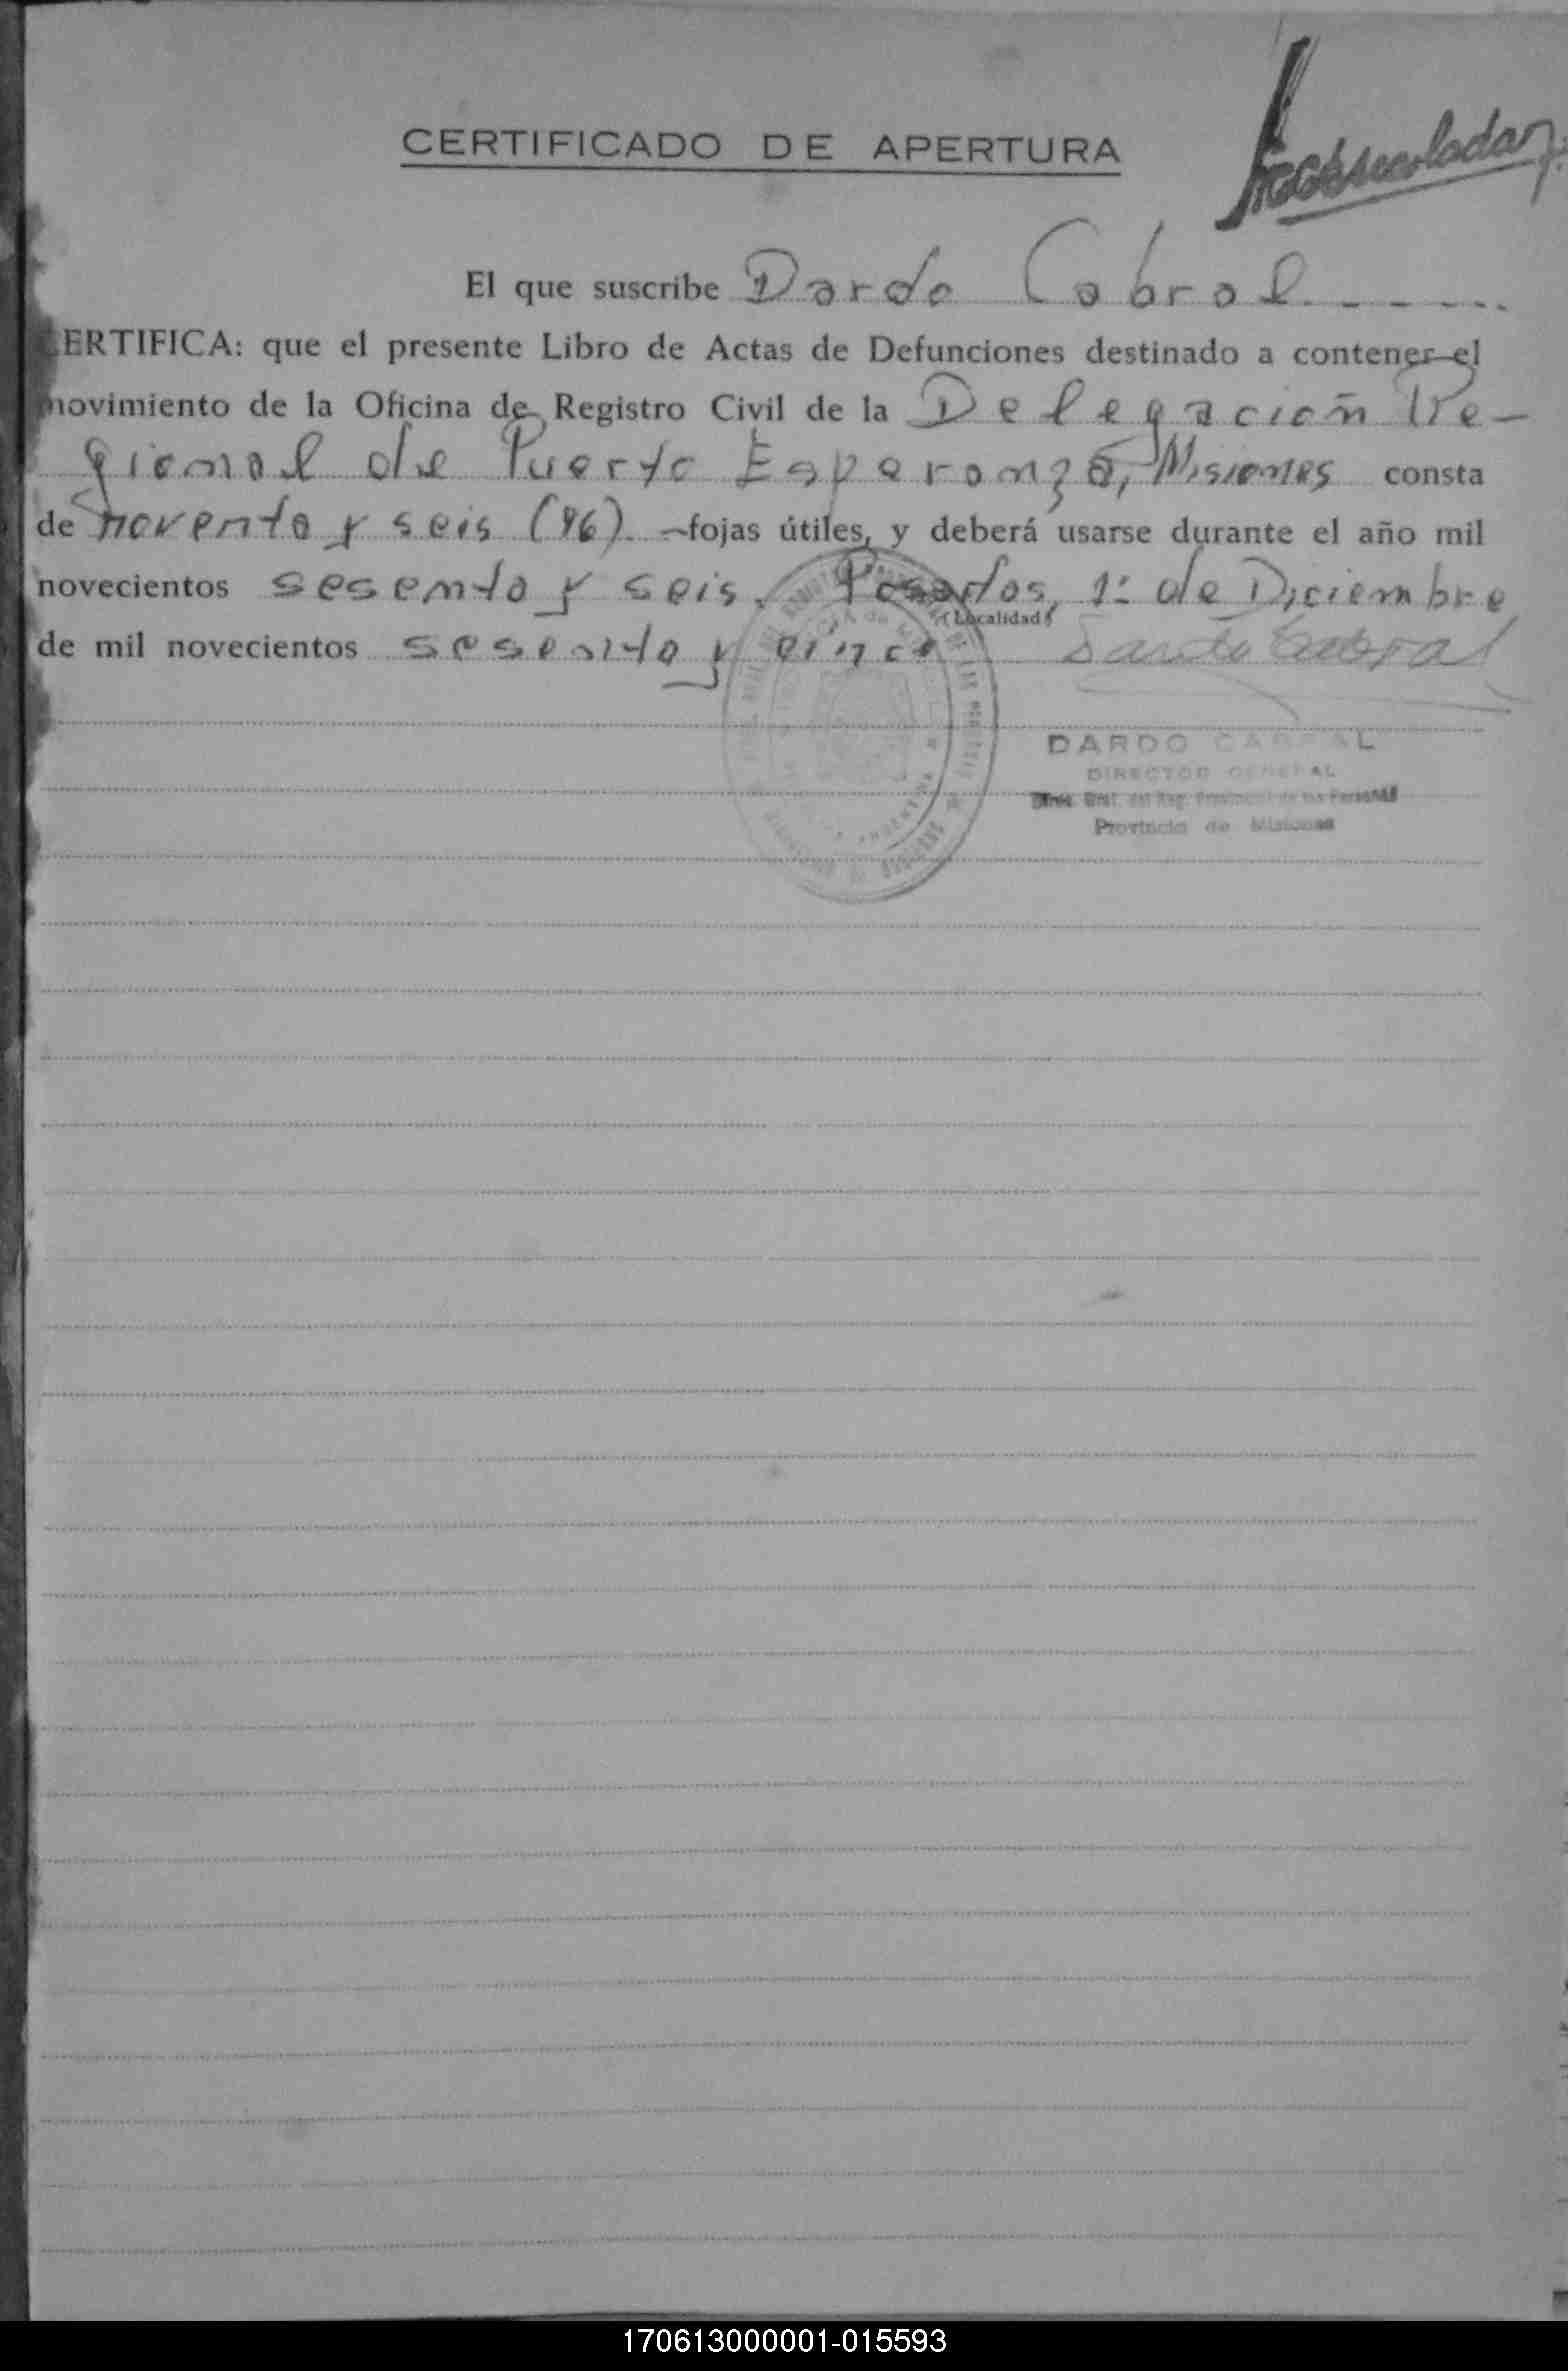 CERTIFICADO DE APERTURA
El que suscribe Dardo Cabral
CERTIFICA: que el presente Libro de Actas de Defunciones destinado a contener el
movimiento de la Oficina de Registro Civil de la Delegación Re-
gional de Puerto Esperanza, Misiones consta
de noventa y seis (96) fojas útiles, y deberá usarse durante el año mil
novecientos sesenta y seis. Posadas, 1º de Diciembre
(Localidad)
de mil novecientos sesenta y cinco Dardo Cabral
DARDO CABRAL
DIRECTOR GENERAL
Direc. Gral. del Reg. Provincial de las Personas
Provincia de Misiones
170613000001-015593